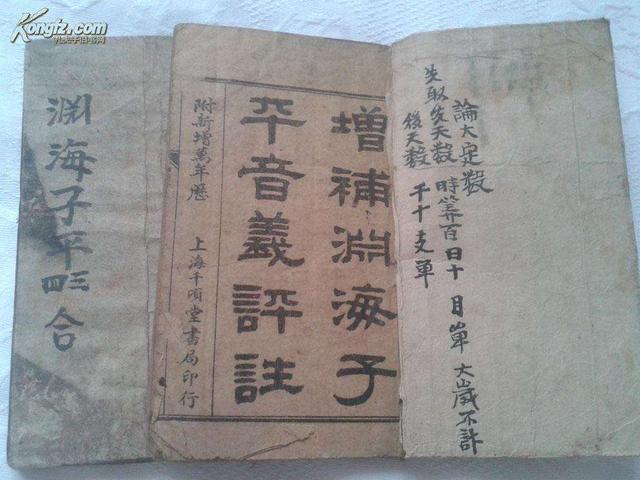 Kongfz.com
孔夫子旧书网
論大定数
時筭百日十月單大歲不計
先取先天数
後天数
千十支單
增補淵海子
平音義評註
附新增萬年歷
上海千頃堂書局印行
渊海子平三四合